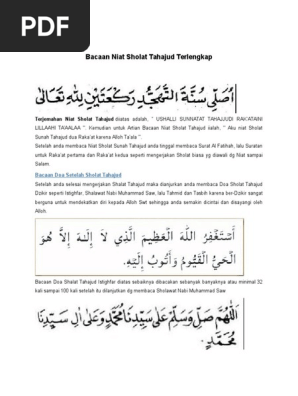 PDF
Bacaan Niat Sholat Tahajud Terlengkap
أُصَلِّى سُنَّةَ التَّهَجُّدِ رَكْعَتَيْنِ لِلّٰهِ تَعَالَى
Terjemahan Niat Sholat Tahajud diatas adalah, " USHALLI SUNNATAT TAHAJJUDI RAK'ATAINI
LILLAAHI TA'AALAA ". Kemudian untuk Artian Bacaan Niat Sholat Tahajud ialah, " Aku niat Sholat
Sunah Tahajud dua Raka'at karena Allah Ta'ala ".
Setelah anda membaca Niat Sholat Sunah Tahajud anda tinggal membaca Surat Al Fatihah, lalu Suratan
untuk Raka'at pertama dan Raka'at kedua seperti mengerjakan Sholat biasa yg diawali dg Niat sampai
Salam.
Bacaan Doa Setelah Sholat Tahajud
Setelah anda selesai mengerjakan Shalat Tahajud maka dianjurkan anda membaca Doa Sholat Tahajud
Dzikir seperti Istighfar, Shalawat Nabi Muhammad Saw, lalu Tahmid dan Tasbih karena ber-Dzikir sangat
berguna untuk mendekatkan diri kepada Allah Swt sehingga anda semakin dicintai dan disayangi oleh
Allah.
أَسْتَغْفِرُ اللّٰهَ الْعَظِيمَ الَّذِي لَا إِلٰهَ إِلَّا هُوَ
الْحَيُّ الْقَيُّومُ وَأَتُوبُ إِلَيْهِ.
Bacaan Doa Shalat Tahajud Istighfar diatas sebaiknya dibacakan sebanyak banyaknya atau minimal 32
kali sampai 100 kali setelah itu dilanjutkan dg membaca Sholawat Nabi Muhammad Saw.
اَللّٰهُمَّ صَلِّ وَسَلِّمْ عَلَى سَيِّدِنَا مُحَمَّدٍ وَعَلَى اٰلِ سَيِّدِنَا
مُحَمَّدٍ.